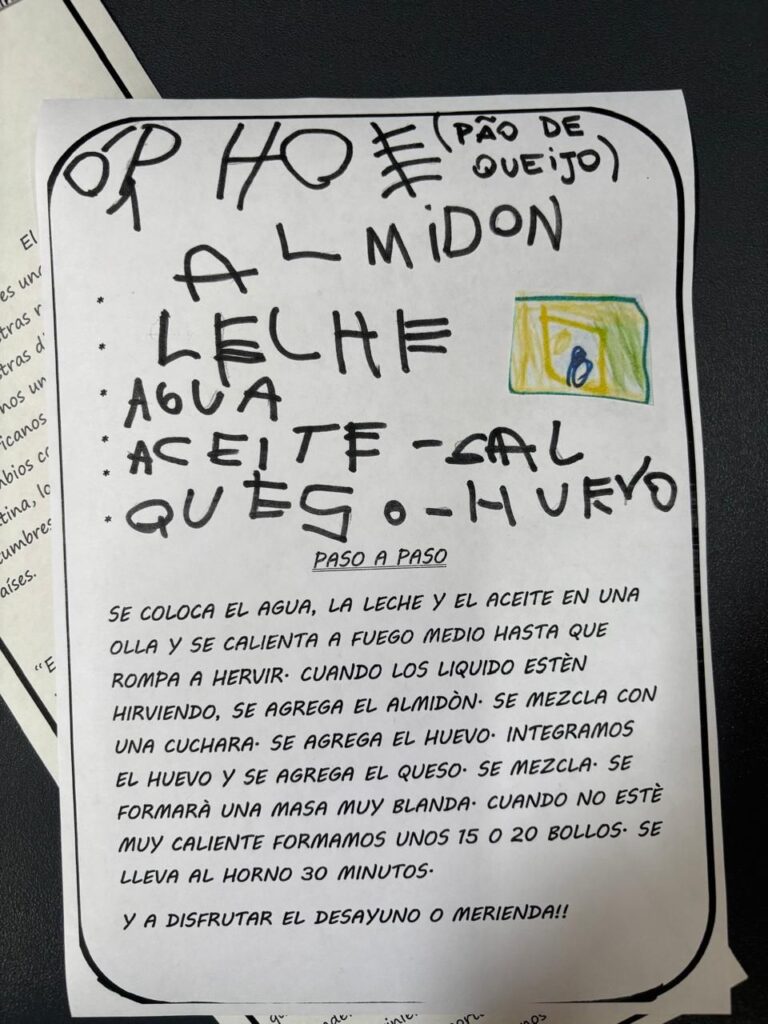 ÓP HOE (PÃO DE
QUEIJO)
* ALMiDON
* LECHE
* AGUA
* ACEITE - SAL
* QUESO - HUEVO
PASO A PASO
SE COLOCA EL AGUA, LA LECHE Y EL ACEITE EN UNA
OLLA Y SE CALIENTA A FUEGO MEDIO HASTA QUE
ROMPA A HERVIR. CUANDO LOS LIQUIDO ESTÈN
HIRVIENDO, SE AGREGA EL ALMIDÒN. SE MEZCLA CON
UNA CUCHARA. SE AGREGA EL HUEVO. INTEGRAMOS
EL HUEVO Y SE AGREGA EL QUESO. SE MEZCLA. SE
FORMARÀ UNA MASA MUY BLANDA. CUANDO NO ESTÈ
MUY CALIENTE FORMAMOS UNOS 15 O 20 BOLLOS. SE
LLEVA AL HORNO 30 MINUTOS.
Y A DISFRUTAR EL DESAYUNO O MERIENDA!!
El